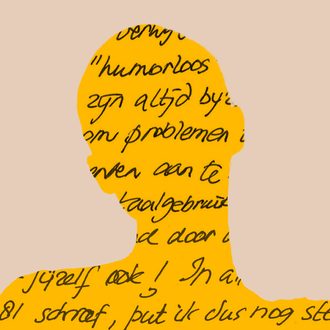 verwijt
"humorloos
zijn altijd bij
om problemen
erven aan te
taalgebruik
d door
jijzelf ook! In a
81 schreef, put ik dus nog ste